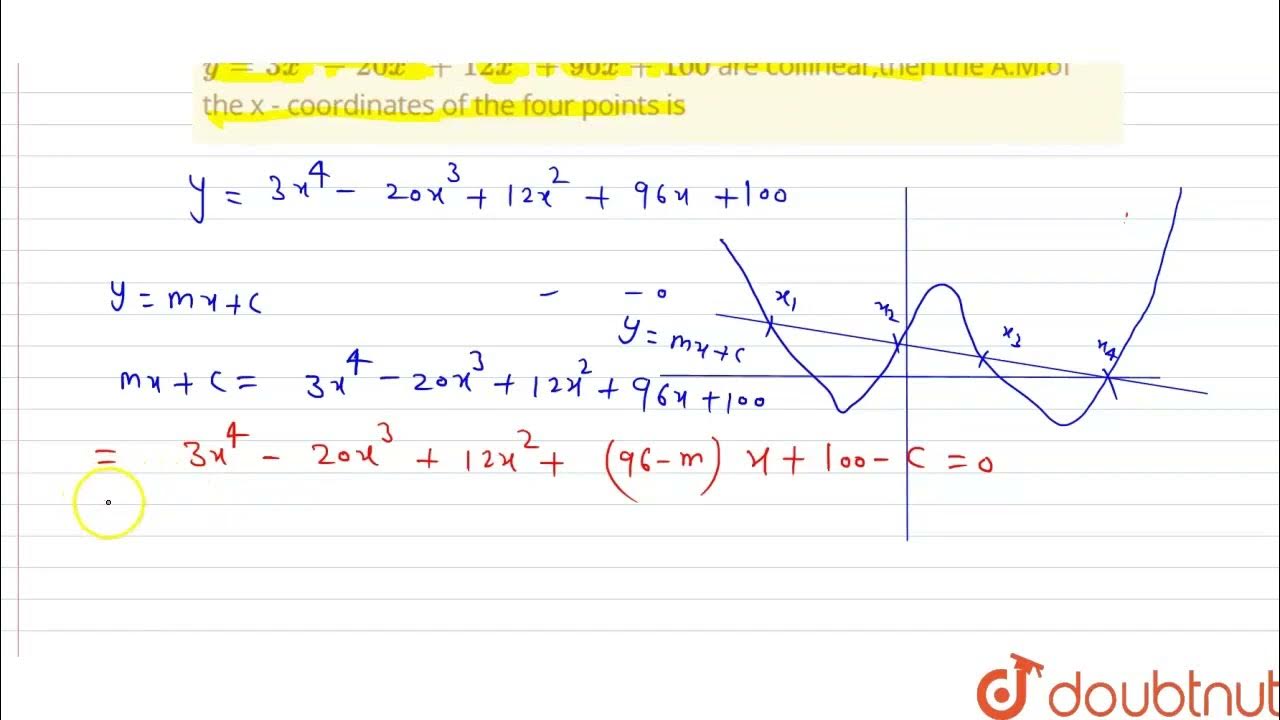 y = 3x⁴ − 20x³ + 12x² + 96x + 100 are collinear,then the A.M.of
the x - coordinates of the four points is
y = 3x⁴ − 20x³ + 12x² + 96x + 100
y = mx + c
x₁
x₂
x₃
x₄
y = mx + c
mx + c = 3x⁴ − 20x³ + 12x² + 96x + 100
= 3x⁴ − 20x³ + 12x² + (96 − m) x + 100 − c = 0
doubtnut